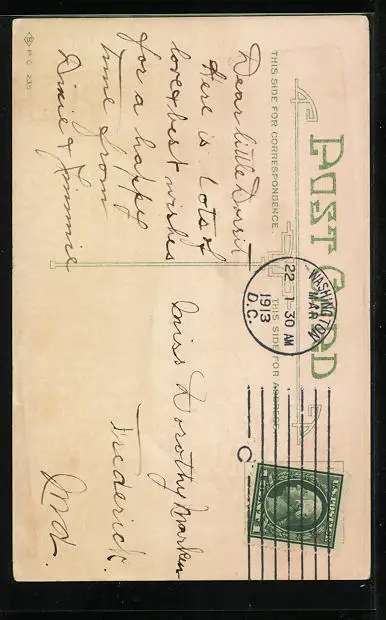 POST CARD
THIS SIDE FOR CORRESPONDENCE.
THIS SIDE FOR ADDRESS.
WASHINGTON
MAR 22 1-30 AM
1913
D.C.
C
U.S. POSTAGE
Dear little
Here is Lots of
love & best wishes
for a happy
time from
Dixie & Jimmie
Miss Dorothy
Frederick
Md.
P.C. 235